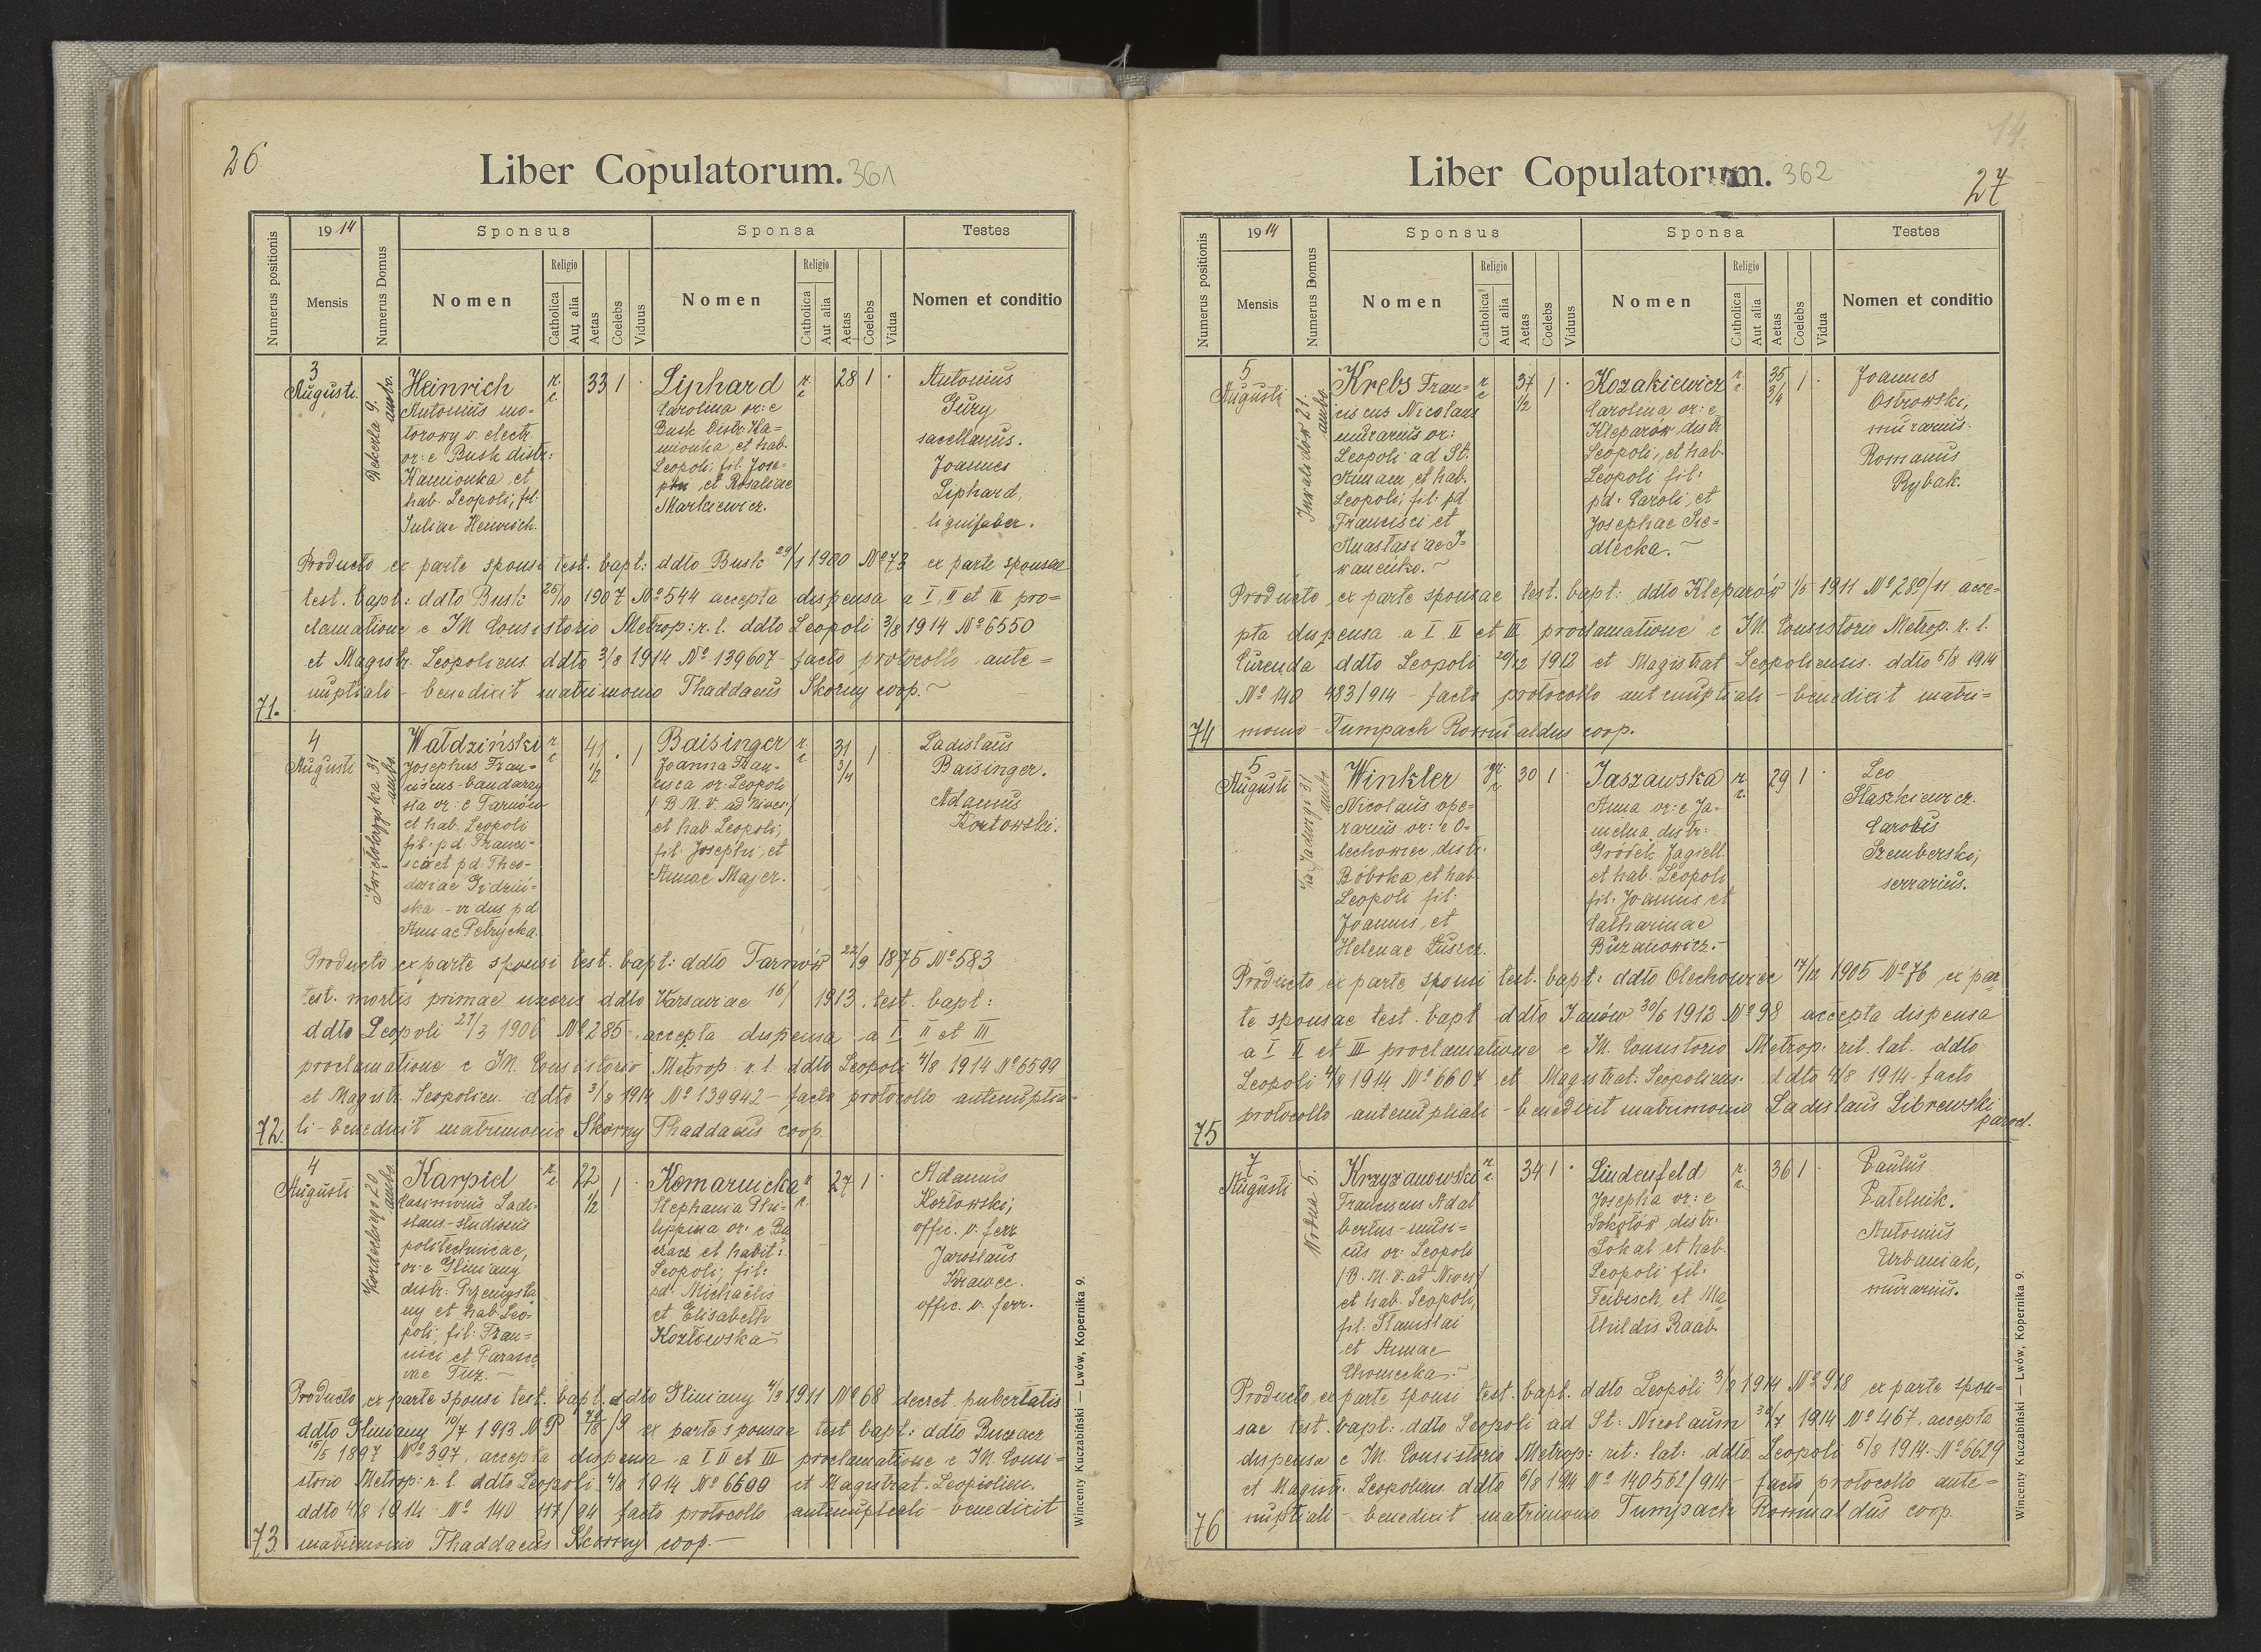 26
Liber Copulatorum. 361
Numerus positionis
1914
Mensis
Numerus Domus
Sponsus
Nomen
Religio
Catholica
Aut alia
Aetas
Coelebs
Viduus
Sponsa
Nomen
Religio
Catholica
Aut alia
Aetas
Coelebs
Vidua
Testes
Nomen et conditio
3
Augusti.
Dekerta 9.
ambo.
Heinrich
Antonius mo-
torowy v. electr.
or: e Busk distr:
Kamionka et
hab. Leopoli, fil.
Juliae Heinrich.
r.
c
33 1 ·
Liphard
Carolina or: e
Busk Distr: Ka=
mionka et hab.
Leopoli; fil. Jose-
phi et Rosaliae
Markiewicz.
r.
c
28 1 ·
Antonius
Gury
sacellanus.
Joannes
Liphard,
lignifaber.
Producto ex parte sponsi test. bapt: ddto Busk 29/1 1900 No 73 ex parte sponsae
test. bapt: ddto Busk 25/10 1907 No 544 accepta dispensa a I, II et III pro=
clamatione e IM. Consistorio Metrop: r. l. ddto Leopoli 3/8 1914 No 6550
et Magistr. Leopoliens. ddto 3/8 1914 No 139607 - facto protocollo ante=
nuptiali - benedixit matrimonio Thaddaeus Skorny coop. ~
71.
4
Augusti
ambo.
Waldziński
Josephus Fran=
ciscus - bandarzy
sta or: e Tarnów
et hab. Leopoli
fil. pd. Franci-
sci et pd. Theo-
dosiae
ska - vidus pd.
Annae Petrycka.
r.
c
41
1/2
· 1
Baisinger
Joanna Fran-
cisca or: Leopoli
/: B. M. V. ad Nives:/
et hab. Leopoli,
fil. Josephi, et
Annae Majer.
r.
c
31
3/4
1 ·
Ladislaus
Baisinger.
Adamus
Kozłowski.
Producto ex parte sponsi test. bapt: ddto Tarnów 22/9 1875 No 583
test. mortis primae uxoris ddto Varsaviae 16/ 1913. test. bapt:
ddto Leopoli 27/3 1906 No 285 accepta dispensa a I II et III
proclamatione e IM. Consistorio Metrop: r. l. ddto Leopoli 4/8 1914 No 6599
et Magistr. Leopolien. ddto 3/8 1914 No 139942 - facto protocollo antenuptia-
li - benedixit matrimonio Skorny Thaddaeus coop.
72.
4
Augusti
Kordeckiego 20
ambo
Karpid
Casimirus Ladi-
slaus - studiosus
politechnicae,
or: e Gliniany
distr. Przemyśla
ny et hab. Leo-
poli, fil: Fran=
cisci et Parasce
vae Tuz. -
r.
c
22
1/2
1
Komarnicka
Stephania Phi-
lippina or: e Bu
czacz et habit:
Leopoli, fil:
pd. Michaelis
et Elisabeth
Kozłowska ~
r.
c.
27 1 ·
Adamus
Kozłowski,
offic. v. ferr.
Jaroslaus
Krawec.
offic. v. ferr.
Producto ex parte sponsi test. bapt. ddto Gliniany 4/3 1911 No 68 decret. pubertatis
ddto Gliniany 10/7 1913 ex parte sponsae test bapt: ddto Buczacz
15/5 1897 No 397. accepta dispensa a I II et III proclamatione e IM. Consi=
storio Metrop: r. l. ddto Leopoli 4/8 1914 No 6600 et Magistrat. Leopolien.
ddto 4/8 1914 No 140 117/94 facto protocollo antenuptiali - benedixit
matrimonio Thaddaeus Skorny coop. -
73.
Wincenty Kuczabiński — Lwów, Kopernika 9.
14.
27
Liber Copulatorum. 362
Numerus positionis
1914
Mensis
Numerus Domus
Sponsus
Nomen
Religio
Catholica
Aut alia
Aetas
Coelebs
Viduus
Sponsa
Nomen
Religio
Catholica
Aut alia
Aetas
Coelebs
Vidua
Testes
Nomen et conditio
5
Augusti
Inwalidów 21.
ambo.
Krebs Fran=
ciscus Nicolaus
murarius or:
Leopoli ad St.
Annam, et hab.
Leopoli, fil: pd
Francisci et
Anastasiae I=
wanciúko. ~
r
c
37
1/2
1 ·
Kozakiewicz
Carolina or: e
Kleparów distr
Leopoli, et hab.
Leopoli fil:
pd: Caroli, et
Josephae Sie=
dlecka. ~
r
c
35
3/4
1 ·
Joannes
Ostrowski,
murarius.
Romanus
Rybak.
Producto ex parte sponsae test. bapt: ddto Kleparów 1/5 1911 No 289/11 acce=
pta dispensa a I II et III proclamatione e IM. Consistorio Metrop. r. l.
Curenda ddto Leopoli 20/12 1912 et Magistrat Leopoliensis. ddto 5/8 1914
No 140 483/914 - facto protocollo antenuptiali - benedixit matri=
monio - Tumpach Romualdus coop.
74
5
Augusti
ambo
Winkler
Nicolaus ope=
rarius or: e O=
lechowiec, distr.
Bóbrka, et hab
Leopoli fil:
Joannis, et
Helenae Łuszcz.
gr.
c
30 1 ·
Jaszawska
Anna or: e Ja-
melna, distr:
Gródek Jagiell.
et hab. Leopoli
fil. Joannis et
Catharinae
Buzanowicz. -
r.
c.
29 1 ·
Leo
Staszkiewicz.
Carolus
Szemberski,
serrarius.
Producto ex parte sponsi test. bapt: ddto Olechowiec 17/12 1905 No 76 ex par
te sponsae test. bapt ddto Janów 30/6 1912 No 98 accepta dispensa
a I II et III proclamatione e IM. Consistorio Metrop: rit. lat. ddto
Leopoli 4/8 1914 No 6607 et Magistrat. Leopoliens. ddto 4/8 1914 - facto
protocollo antenuptiali - benedixit matrimonio Ladislaus Librewski
paroch.
75
7
Augusti
Wodna 5.
Krzyżanowski
Franciscus Adal
bertus - musi=
cus or: Leopoli
/B. M. V. ad Nives/
et hab. Leopoli,
fil. Stanislai
et Annae
Chomicka. ~
r.
c.
34 1 ·
Lindenfeld
Josepha or: e
Sokołów distr:
Sokal et hab.
Leopoli fil:
Feibisch, et Ma
thildis Raab.
r.
c
36 1 ·
Paulus
Patelnik.
Antonius
Urbaniak,
murarius.
Producto ex parte sponsi test. bapt. ddto Leopoli 3/8 1914 No 918 ex parte spon=
sae test. bapt: ddto Leopoli ad St: Nicolaum 30/7 1914 No 467. accepta
dispensa e IM. Consistorio Metrop: rit: lat: ddto Leopoli 5/8 1914. No 6629
et Magistr. Leopoliens. ddto 6/8 1914 No 140562/914 - facto protocollo ante=
nuptiali - benedixit matrimonio Tumpach Romualdus coop.
76
Wincenty Kuczabiński — Lwów, Kopernika 9.